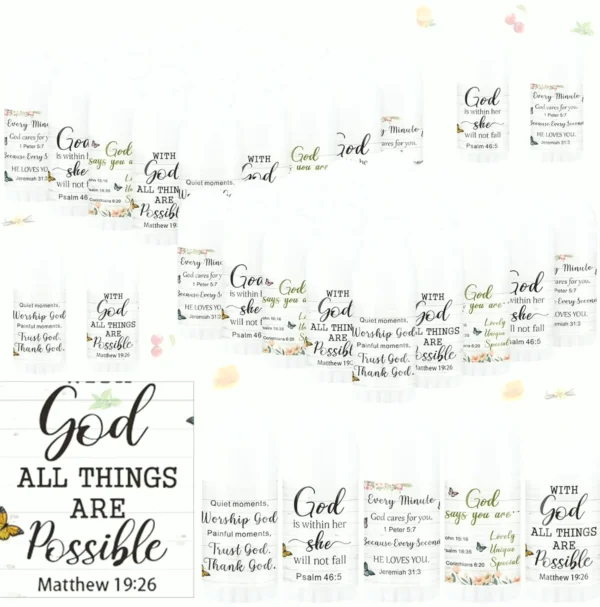 Every Minute
God cares for y
1 Peter 5:7
Because Every S
HE LOVES YOU
Jeremiah 31:3
God
is within h
she
will not f
Psalm 46
God
says you a
WITH
God
ALL THIN
ARE
Possibl
Matthew 19
Quiet moments,
WITH
God
God
you are
God
Every Minute
cares for
God
is within her
she
will not fall
Psalm 46:5
Every Minute
God cares for you.
1 Peter 5:7
Because Every Second
HE LOVES YOU.
Jeremiah 31:3
Quiet moments,
Worship God
Painful moments,
Trust God.
Thank God.
WITH
God
ALL THINGS
ARE
Possible
Matthew 19:26
Every Minu
God cares for
1 Peter 5:7
Because Every S
HE LOVES YO
Jeremiah 31:
God
is within h
she
will not f
Psalm 46
God
says you a
WITH
God
ALL THIN
ARE
Possibl
Matthew 19
Quiet moments,
Worship God.
Painful moments,
Trust God.
Thank God.
WITH
God
ALL THINGS
ARE
Possible
Matthew 19:26
God
says you are
Lovely
Unique
Special
God
within her
she
will not fall
Psalm 46:5
Every Minute
God cares for you.
1 Peter 5:7
Every Second
LOVES YOU.
Jeremiah 31:3
WITH
God
ALL THINGS
ARE
Possible
Matthew 19:26
Quiet moments,
Worship God
Painful moments,
Trust God.
Thank God.
God
is within her
she
will not fall
Psalm 46:5
Every Minute
God cares for you.
1 Peter 5:7
Because Every Second
HE LOVES YOU.
Jeremiah 31:3
God
says you are
Lovely
Psalm 16:35
Unique
Corinthians 6:20
Special
WITH
God
ALL THINGS
ARE
Possible
Matthew 19:26